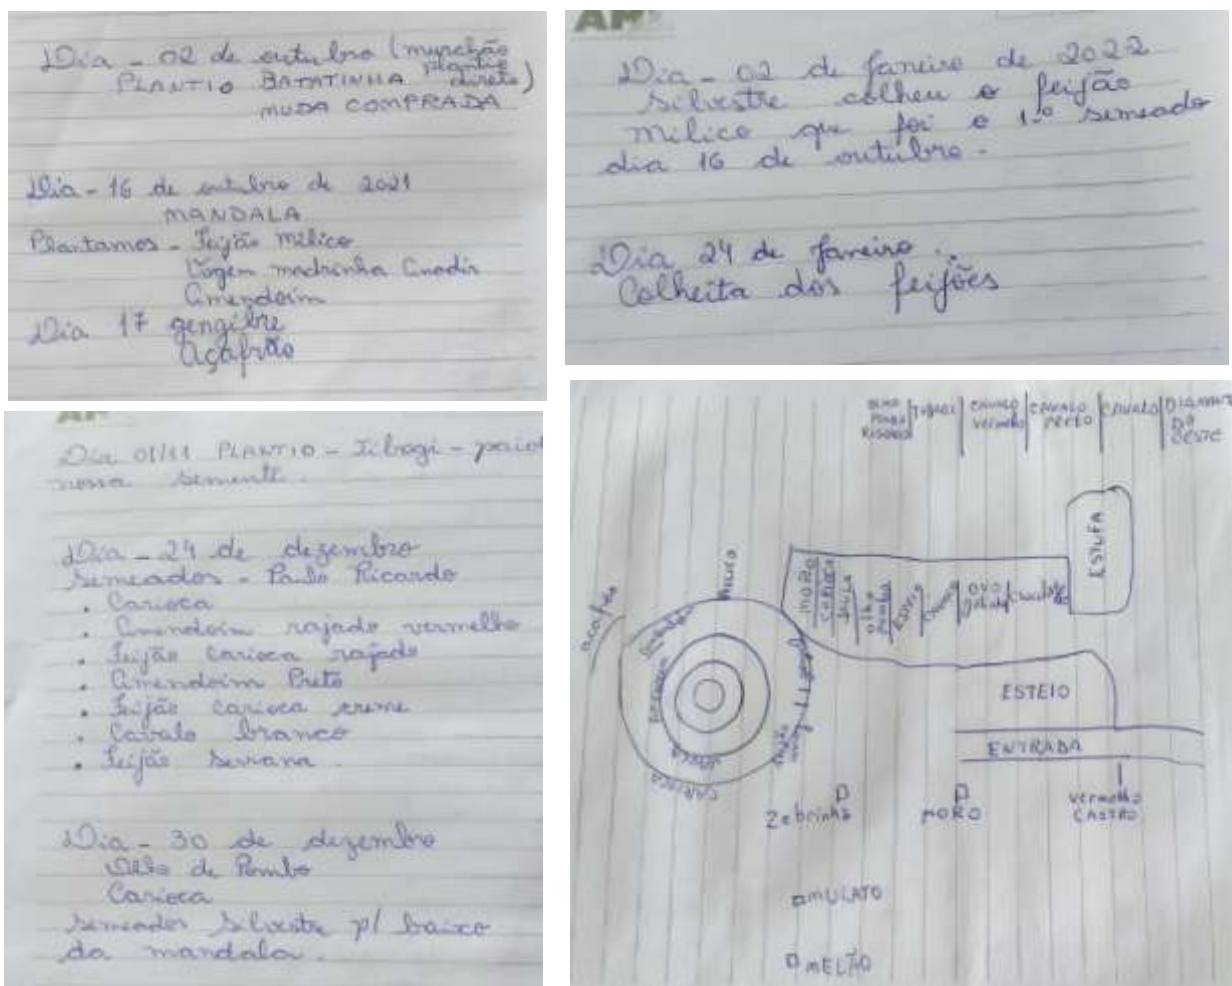 Dia - 02 de outubro (murchão
plantio
PLANTIO BATATINHA direto)
MUDA COMPRADA
Dia - 16 de outubro de 2021
MANDALA
Plantamos - Feijão milico
Vagem madrinha
Amendoim
Dia 17 gengibre
Açafrão
AM
Dia - 02 de janeiro de 2022
Silvestre colheu o feijão
milico que foi o 1º semeado
dia 16 de outubro.
Dia 24 de janeiro.
Colheita dos feijões
AM
Dia 01/11 PLANTIO - Tibagi - paiol
nossa semente.
Dia - 24 de dezembro
semeados - Paulo Ricardo
. Carioca
. Amendoim rajado vermelho
. Feijão carioca rajado
. Amendoim Preto
. Feijão carioca creme
. Cavalo branco
. Feijão serrana.
Dia - 30 de dezembro
Olho de Pombo
Carioca
semeados Silvestre p/ baixo
da mandala.
CAVALO
VERMELHO
CAVALO
PRETO
CAVALO
DIAMANTE
DO
OESTE
ESTUFA
MILICO
açafrão
MORO
CARIOCA
OVO
ESTEIO
ENTRADA
CARIOCA
Zebrinha
MORO
VERMELHO
CASTRO
MULATO
MELÃO